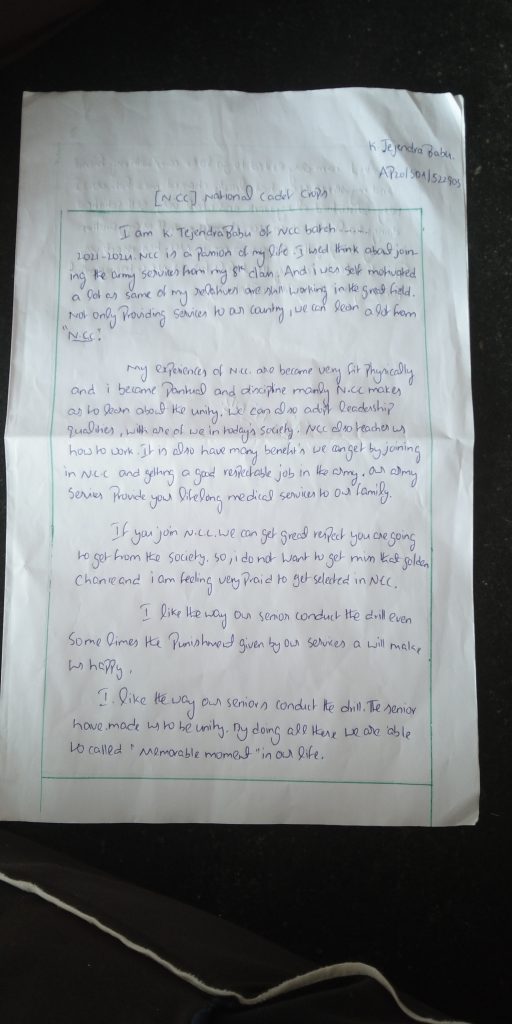 K Tejendra Babu.
AP20/SDA/522903
[NCC] National Cadet Crops
I am K. Tejendra Babu of NCC batch ........
2021-2024. NCC is a passion of my life. I used think about join-
ing the army services from my 8th class. And i was self motivated
a lot as same of my relatives are still working in the great field.
Not only Providing services to our country, we can learn a lot from
"NCC".
My experiences of NCC. are become very fit physically
and i became Pantual and discipline manly N.CC makes
as to learn about the unity. We can also adopt leadership
qualities, with are of we in today's society. NCC also teacher us
how to work. It is also have many benefit's we can get by joining
in NCC and getting a good respectable job in the army. our army
servies Provide you lifelong medical services to our family.
If you join N.CC. we can get great respect you are going
to get from the society. so, i do not want to get miss that golden
Chance and i am feeling very Praid to get selected in NCC.
I like the way our senior conduct the drill even
Some times the Punishment given by our services a will make
us happy.
I. like the way our seniors conduct the drill. The senior
have made us to be unity. By doing all these we are able
to called "Memorable moment" in our life.